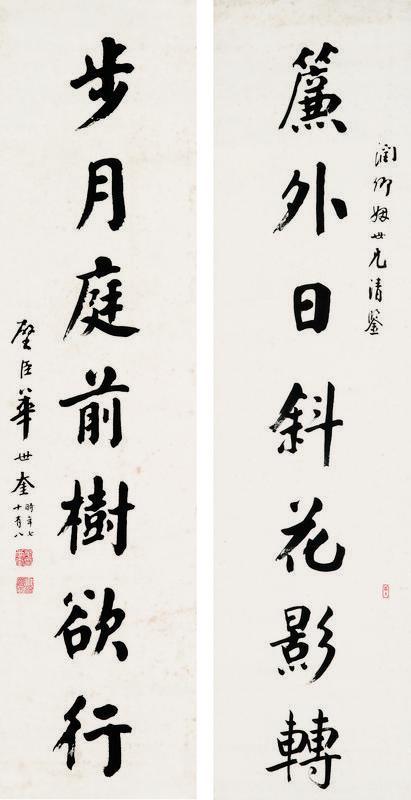 潤卿姻世兄清鑒
簾外日斜花影轉
步月庭前樹欲行
璧臣華世奎
時年七
十有八